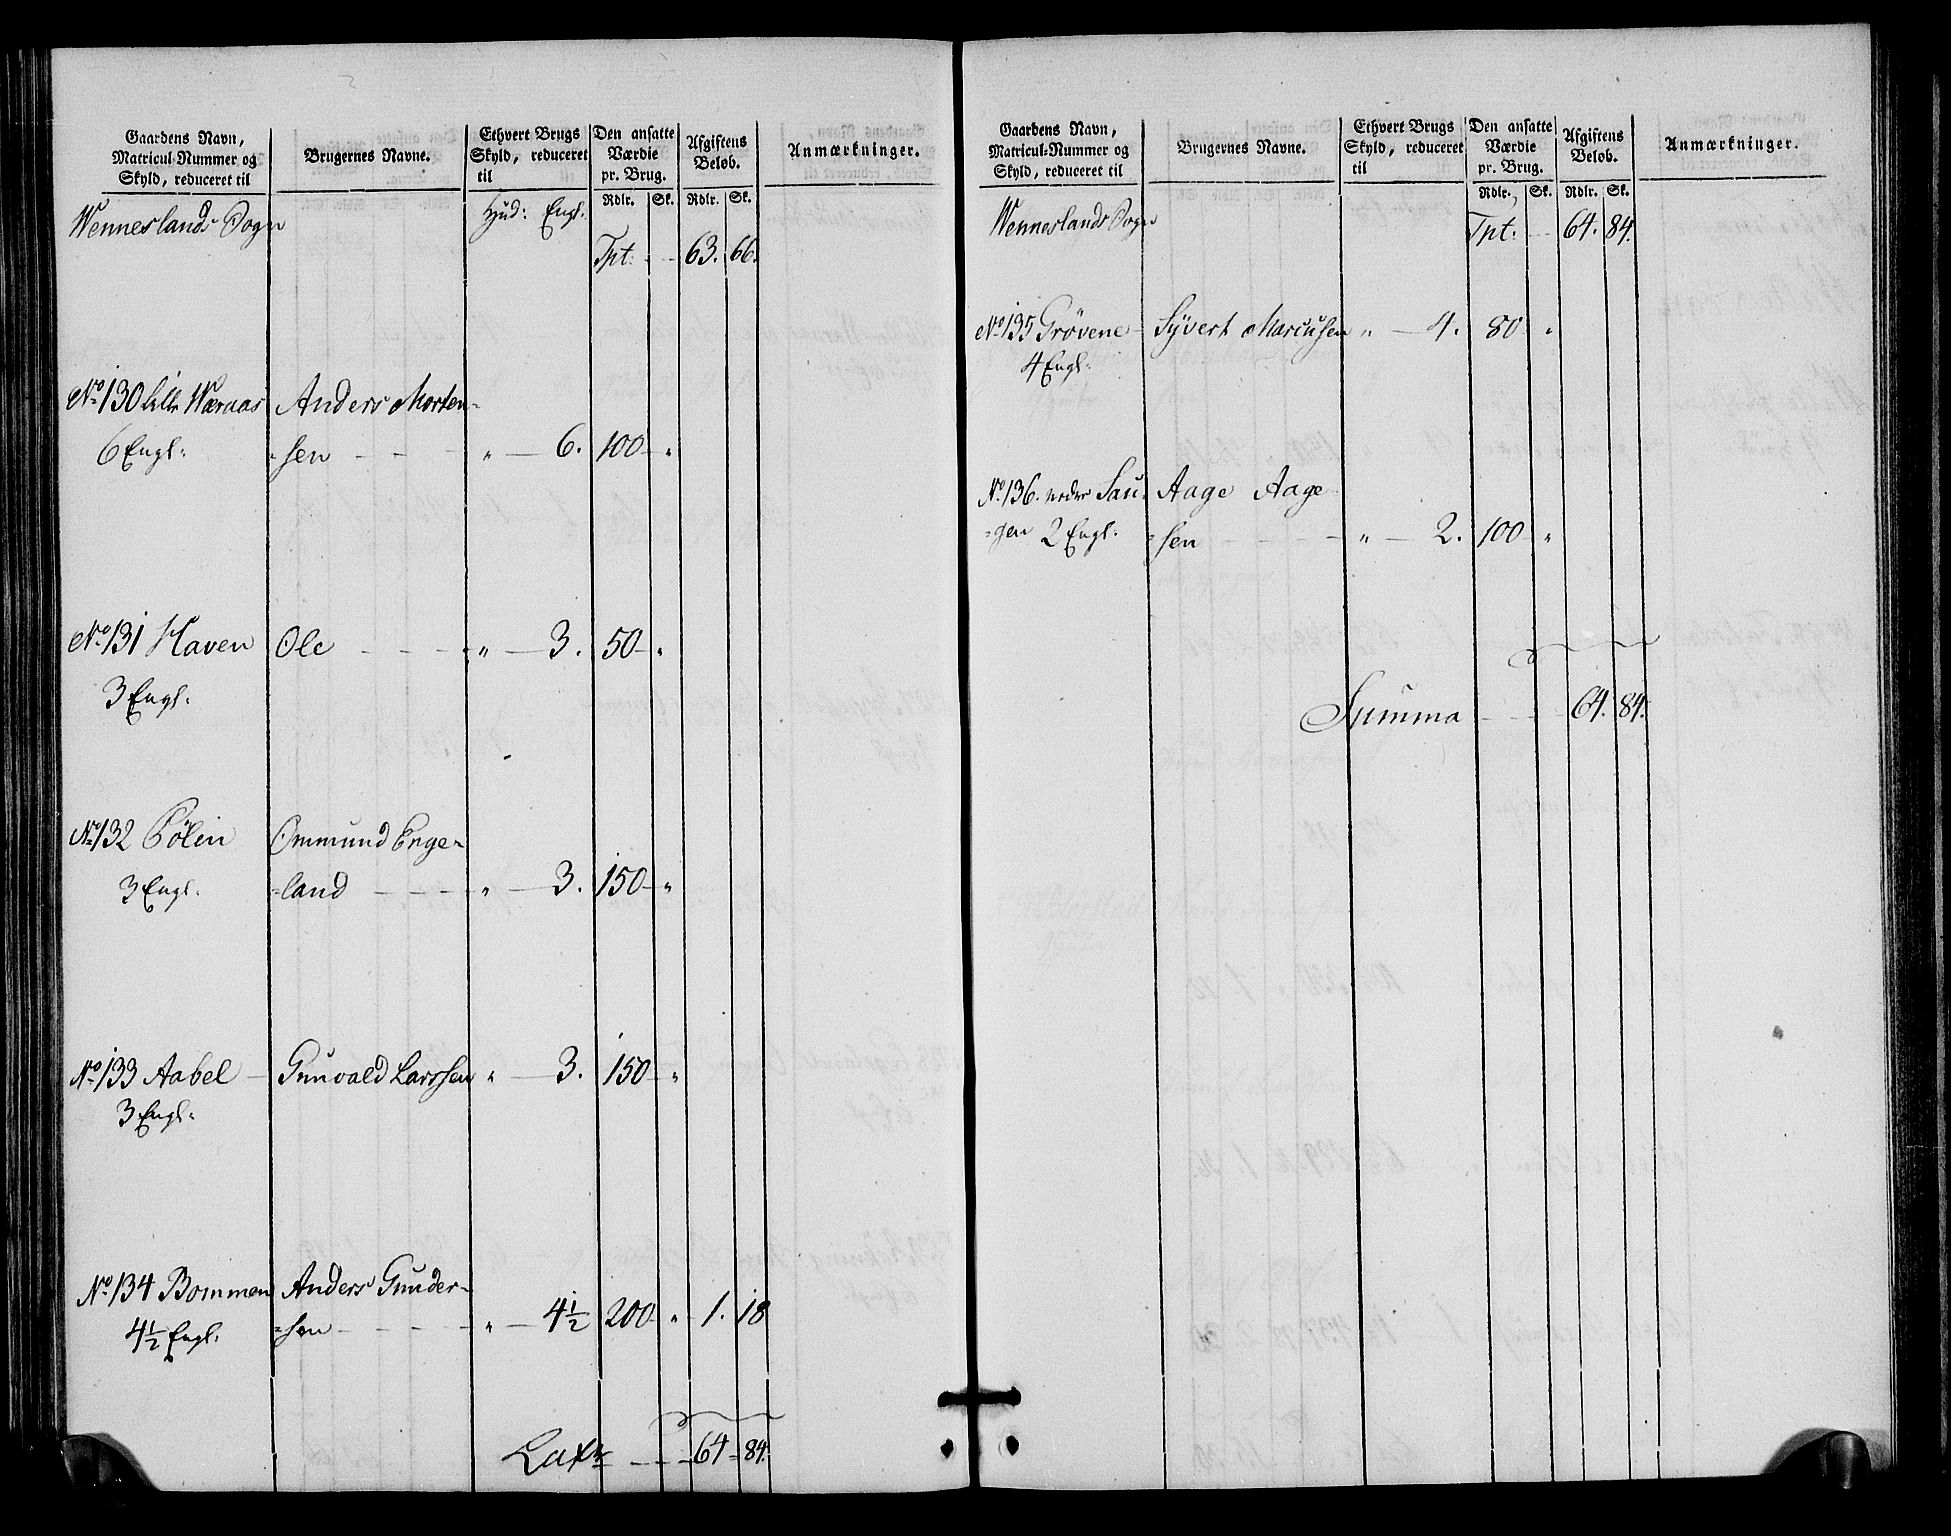 Gaardens Navn,
Matricul-Nummer og
Skyld, reduceret til
Brugernes Navne.
Ethvert Brugs
Skyld, reduceret
til
Den ansatte
Værdie
pr. Brug.
Afgiftens
Beløb.
Anmærkninger.
Rdlr. Sk. Rdlr. Sk.
Wenneslands Sogn Hud: Engl.
Tpt: 63. 66.
No 130 lille Waraas Anders Morten-
6 Engl. =sen " 6. 100 "
No 131 Haven Ole " 3. 50 "
3 Engl.
No 132 Ommund Enge-
3 Engl. =land " 3. 150 "
No 133 Aabel Gunvald Larssen " 3. 150 "
3 Engl.
No 134 Bommen Anders Gunder-
4½ Engl. =sen " 4½ 200 " 1. 18
64 84.
Gaardens Navn,
Matricul-Nummer og
Skyld, reduceret til
Brugernes Navne.
Ethvert Brugs
Skyld, reduceret
til
Den ansatte
Værdie
pr. Brug.
Afgiftens
Beløb.
Anmærkninger.
Rdlr. Sk. Rdlr. Sk.
Wenneslands Sogn Tpt: 64. 84.
No 135 Grøvene Syvert Marcusen " 4. 80 "
4 Engl.
No 136. nedre Sau- Aage Aage-
=gen 2 Engl. =sen " 2. 100 "
Summa 64. 84.